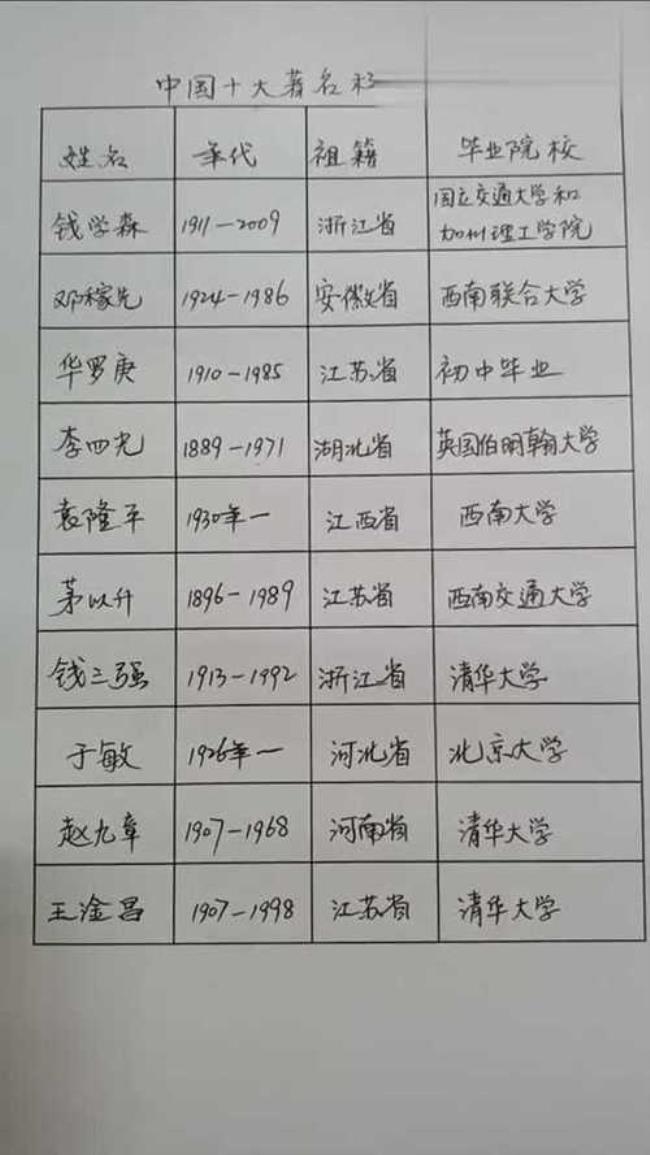 中国十大著名科
姓名 年代 祖籍 毕业院校
钱学森 1911-2009 浙江省 国立交通大学和
加州理工学院
邓稼先 1924-1986 安徽省 西南联合大学
华罗庚 1910-1985 江苏省 初中毕业
李四光 1889-1971 湖北省 英国伯明翰大学
袁隆平 1930年一 江西省 西南大学
茅以升 1896-1989 江苏省 西南交通大学
钱三强 1913-1992 浙江省 清华大学
于敏 1926年一 河北省 北京大学
赵九章 1907-1968 河南省 清华大学
王淦昌 1907-1998 江苏省 清华大学